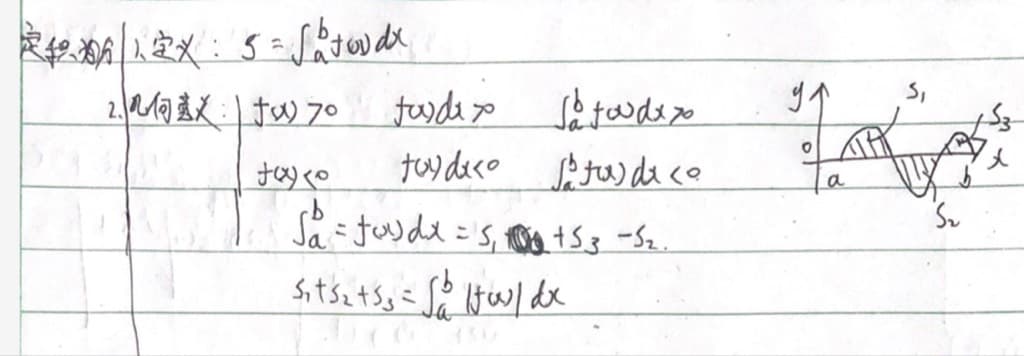 定积分 1、定义: S = ∫_a^b f(x) dx
2. 几何意义: f(x) >0 f(x)dx >0 ∫_a^b f(x)dx >0
f(x) <0 f(x)dx <0 ∫_a^b f(x)dx <0
∫_a^b = f(x)dx = S₁ + S₃ - S₂.
S₁+S₂+S₃ = ∫_a^b |f(x)| dx
y S₁ S₃
0 a b x
S₂